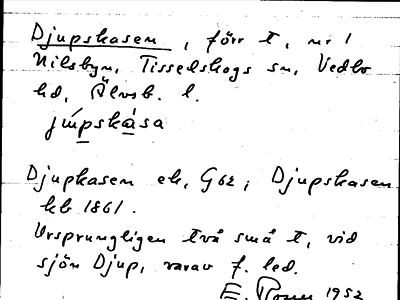 Djupskasen, förr t, nr 1
Nilsbyn, Tisselskogs sn, Vedbo
hd, Älvsb. l.
júpskàsa
Djupkasen ek, G62; Djupskasen
kb 1861.
Ursprungligen två små t, vid
sjön Djup, varav f. led.
E. 1952